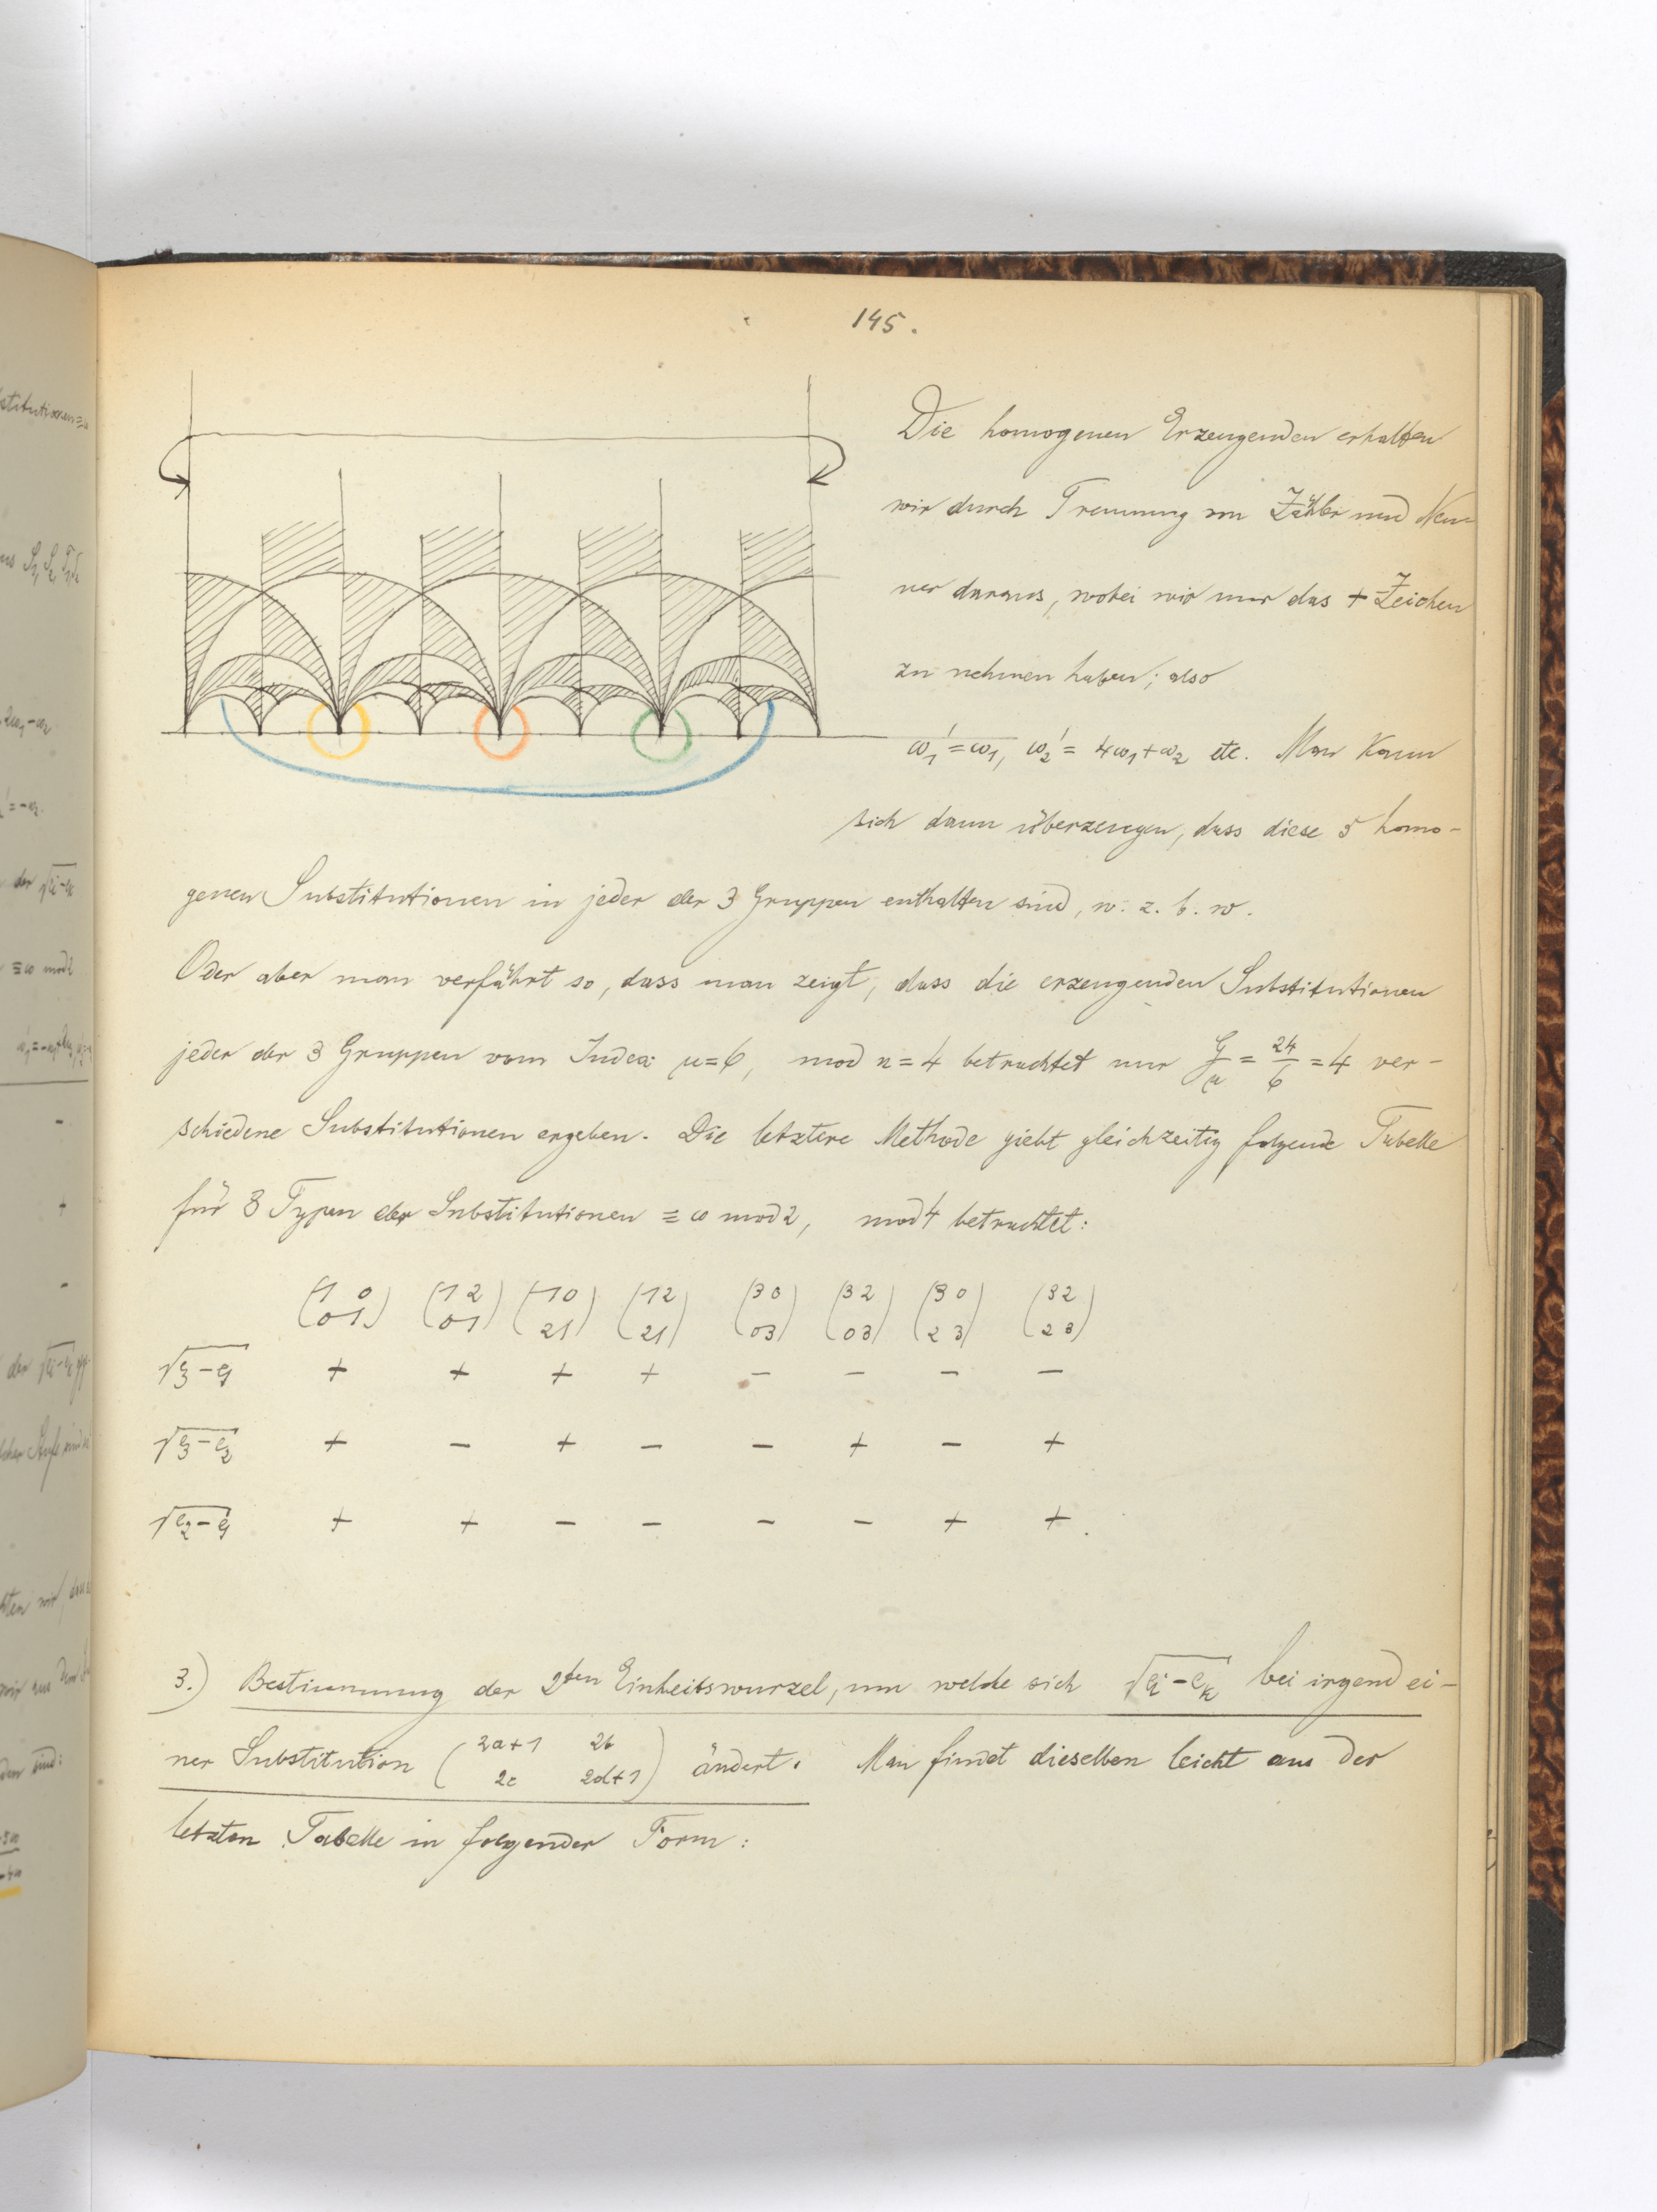 145.
Die homogenen Erzeugenden erhalten
wir durch Trennung von Zähler und Nen-
ner daraus, wobei wir nur das + Zeichen
zu nehmen haben; also
ω₁' = ω₁, ω₂' = 4ω₁+ω₂ etc. Man kann
sich dann überzeugen, dass diese 5 homo-
genen Substitutionen in jeder der 3 Gruppen enthalten sind, w. z. b. w.
Oder aber man verfährt so, dass man zeigt, dass die erzeugenden Substitutionen
jeder der 3 Gruppen vom Index μ=6, mod n=4 betrachtet nur G/μ = 24/6 = 4 ver-
schiedene Substitutionen ergeben. Die letztere Methode giebt gleichzeitig folgende Tabelle
für 8 Typen der Substitutionen ≡ ω mod 2, mod 4 betrachtet:
(1 0) (1 2) (1 0) (1 2) (3 0) (3 2) (3 0) (3 2)
(0 1) (0 1) (2 1) (2 1) (0 3) (0 3) (2 3) (2 3)
√e₃-e₁ + + + + - - - -
√e₃-e₂ + - + - - + - +
√e₂-e₁ + + - - - - + + .
3.) Bestimmung der 2ten Einheitswurzel, um welche sich √eᵢ-eₖ bei irgend ei-
ner Substitution (2a+1 2b / 2c 2d+1) ändert. Man findet dieselben leicht aus der
letzten Tabelle in folgender Form: